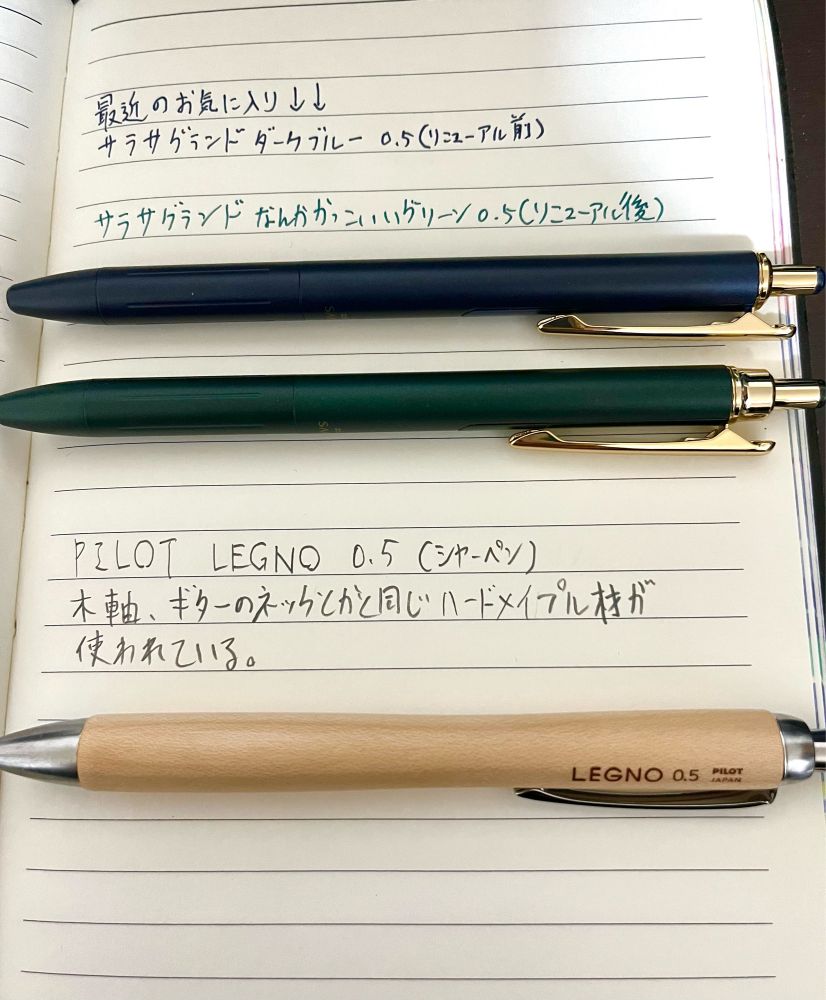 最近のお気に入り↓↓
サラサグランド ダークブルー 0.5(リニューアル前)
サラサグランド なんかかっこいいグリーン 0.5(リニューアル後)
PILOT LEGNO 0.5 (シャーペン)
木軸、ギターのネックとかと同じハードメイプル材が
使われている。
LEGNO 0.5 PILOT
JAPAN